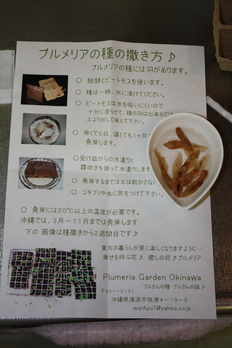 プルメリアの種の撒き方♪
プルメリアの種には羽があります。
○ 紙鉢とピートモスを使います。
○ 種は一晩、水に漬けてください。
○ ピートモスは水を吸いにくいので
十分に湿らせて、種の羽が出るだけ
土より出して植え下さい。
○ 早くて5日、遅くても1ヶ月
発芽します。
○ 受け皿からの水遣りと
霧吹きを使って水遣りします
○ 発芽するまでは土は乾かさない
○ ゴキブリや虫に気をつけて下さい。
○ 発芽には20℃以上の温度が必要です。
沖縄では、3月～11月までは発芽します
下の画像は種撒きから2週間目です♪
貴方の暮らしが更に楽しくなりますように…
幸せを呼ぶ花♪癒しの花♪プルメリア
Plumeria Garden Okinawa
プルさんの種・プルさんの庭♪
〒901-2131
沖縄県浦添市牧港4-19-5
wantyu7@yahoo.co.jp